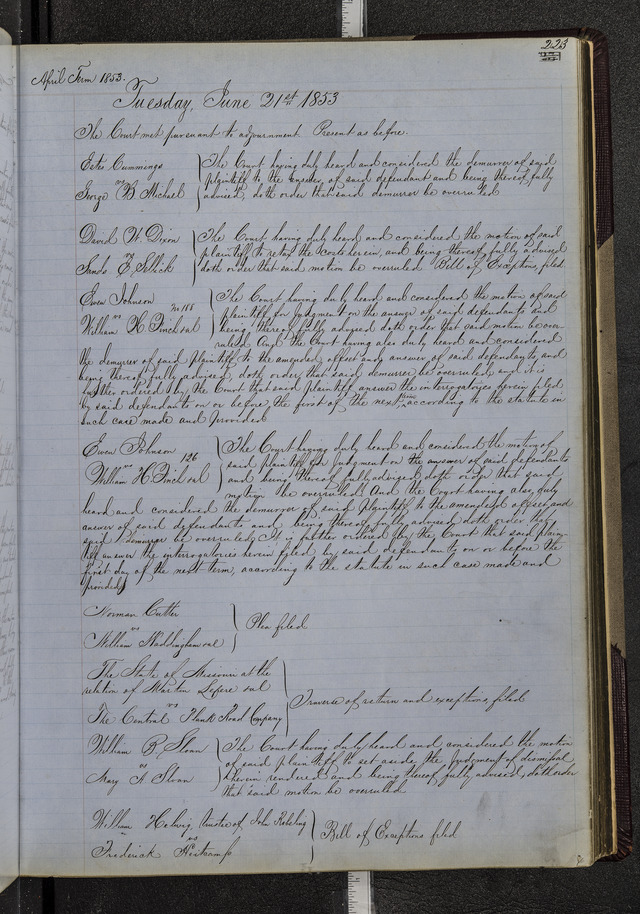 223
April Term 1853.
Tuesday, June 21st 1853
The Court met pursuant to adjournment. Present as before.
Cummings
vs
George B Michael
The Court having duly heard and considered the demurrer of said
plaintiff to the answer of said defendant and being thereof fully
advised, doth order that said demurrer be overruled
David N. Dixon
vs
E. Sellick
The Court having duly heard and considered the motion of said
plaintiff to retax the costs herein, and being thereof fully advised
doth order that said motion be overruled Bill of Exceptions filed.
Ewen Johnson
vs No 188
William H. Finch et al
The Court having duly heard and considered the motion of said
plaintiff, for judgment on the answer of said defendants and
being thereof fully advised doth order that said motion be over-
ruled. And the Court having also duly heard and considered
the demurrer of said plaintiff to the amended offset and answer of said defendants, and
being thereof fully advised, doth order, that said demurrer be overruled, and it is
further ordered by the Court that said plaintiff answer the interrogatories herein filed
by said defendants on or before the first of the next term, according to the statute in
such case made and provided
Ewen Johnson
vs 126
William H. Finch et al
The Court having duly heard and considered the motion of
said plaintiff for judgment on the answer of said defendants
and being thereof fully advised doth order that said
motion be overruled. And the Court having also, duly
heard and considered the demurrer of said plaintiff to the amended offset and
answer of said defendants and being thereof fully advised doth order that
said demurrer be overruled, It is further ordered by the Court that said plain-
tiff answer the interrogatories herein filed by said defendants on or before the
first day of the next term, according to the statute in such case made and
provided
Norman Cutter
vs
William Waddingham et al
Plea filed
The State of Missouri at the
relation of Martin Lepere et al
vs
The Central Plank Road Company
Traverse of return and exceptions, filed
William B. Sloan
vs
Mary A Sloan
The Court having duly heard and considered the motion
of said plaintiff to set aside the judgment of dismissal
herein rendered and being thereof fully advised, doth order
that said motion be overruled.
William Helwig trustee of John
vs
Frederick
Bill of Exceptions filed